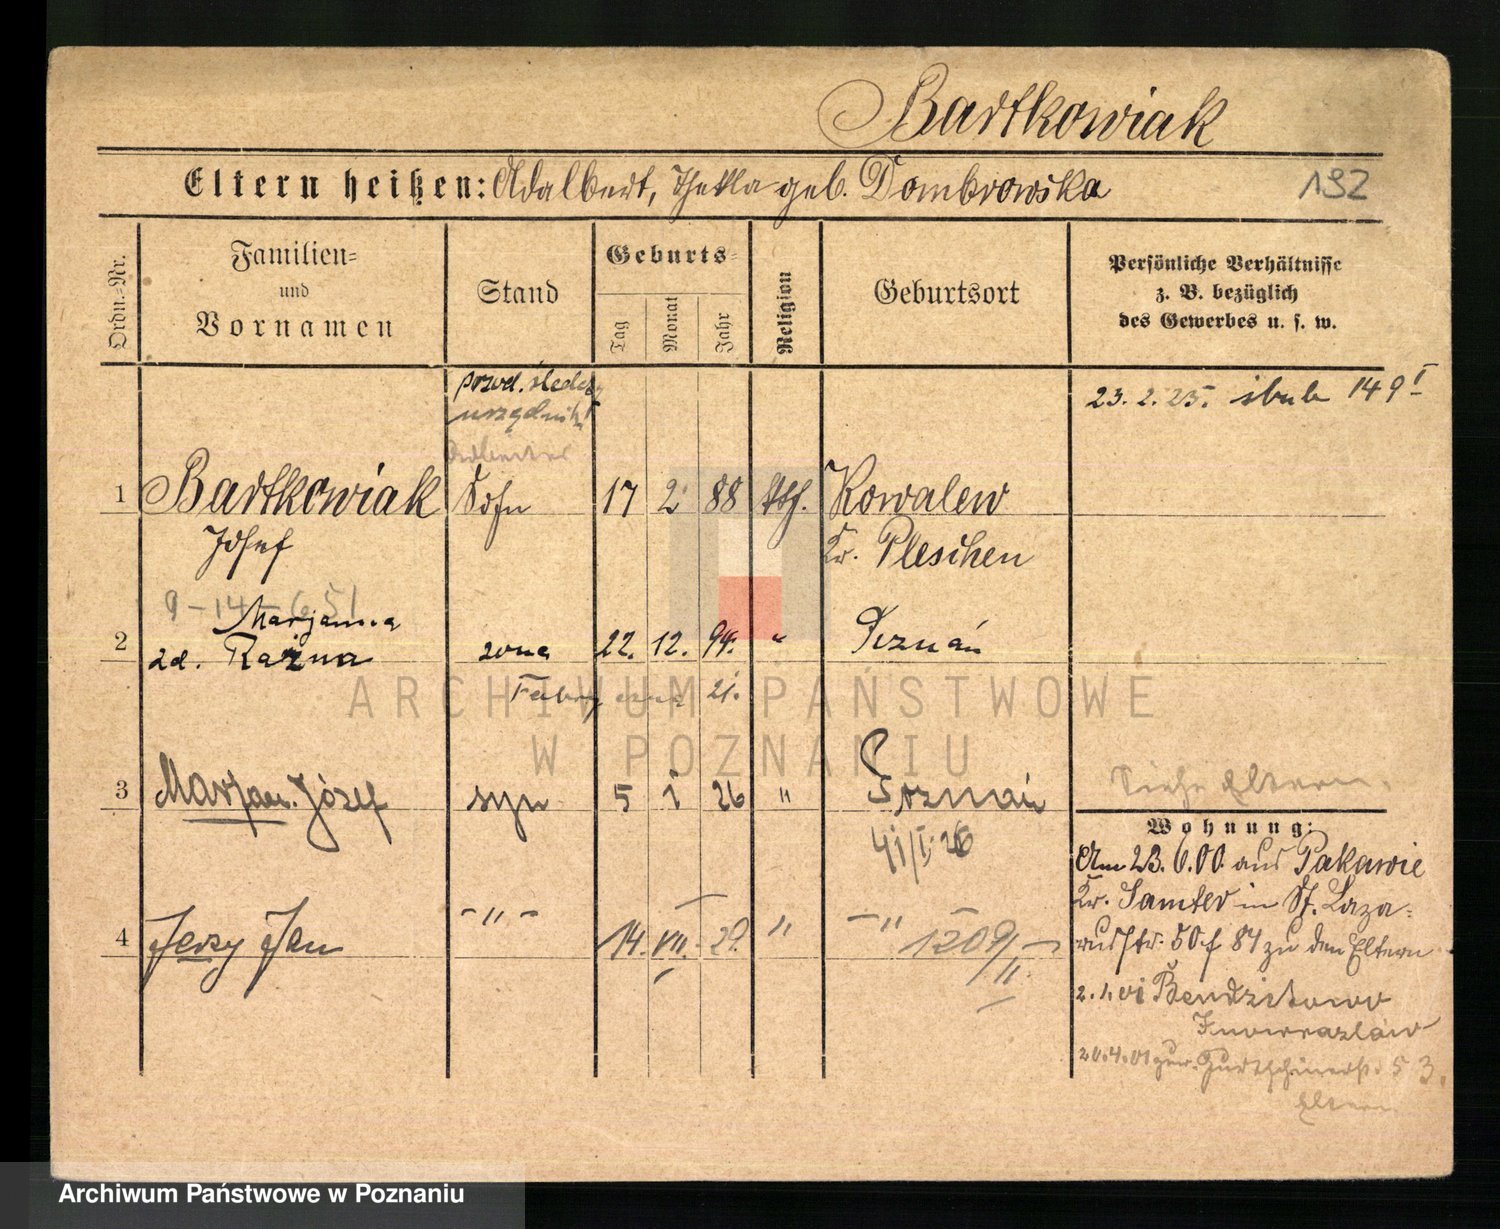 Bartkowiak
Eltern heißen: Adalbert, Thekla geb. Dombrowska
192
Ordn.-Nr.
Familien-
und
Vornamen
Stand
Geburts-
Tag
Monat
Jahr
Religion
Geburtsort
Persönliche Verhältnisse
z. B. bezüglich
des Gewerbes u. s. w.
urzędnik
23. 2. 25. 149 I
Arbeiter
1 Bartkowiak Sohn 17 2 88 kth. Kowalew
Josef Kr. Pleschen
9-14-651
Marjanna
2 zd. Raźna żona 22. 12. 94. " Poznań
21.
3 Marjan Józef syn 5 1 26 " Poznań
Siehe Eltern.
41/I. 26
Wohnung:
Am 23. 6. 00. aus Pakawie
Kr. Samter in St. Laza-
russtr. 50 f 84 zu den Eltern
4 Jerzy Jan -"- 14. VII. 29. " -"- 1209/II.
2. 1. 01
Inowrazlaw
20. 4. 01 zur. 53.
Eltern
ARCHIWUM PAŃSTWOWE
W POZNANIU
Archiwum Państwowe w Poznaniu